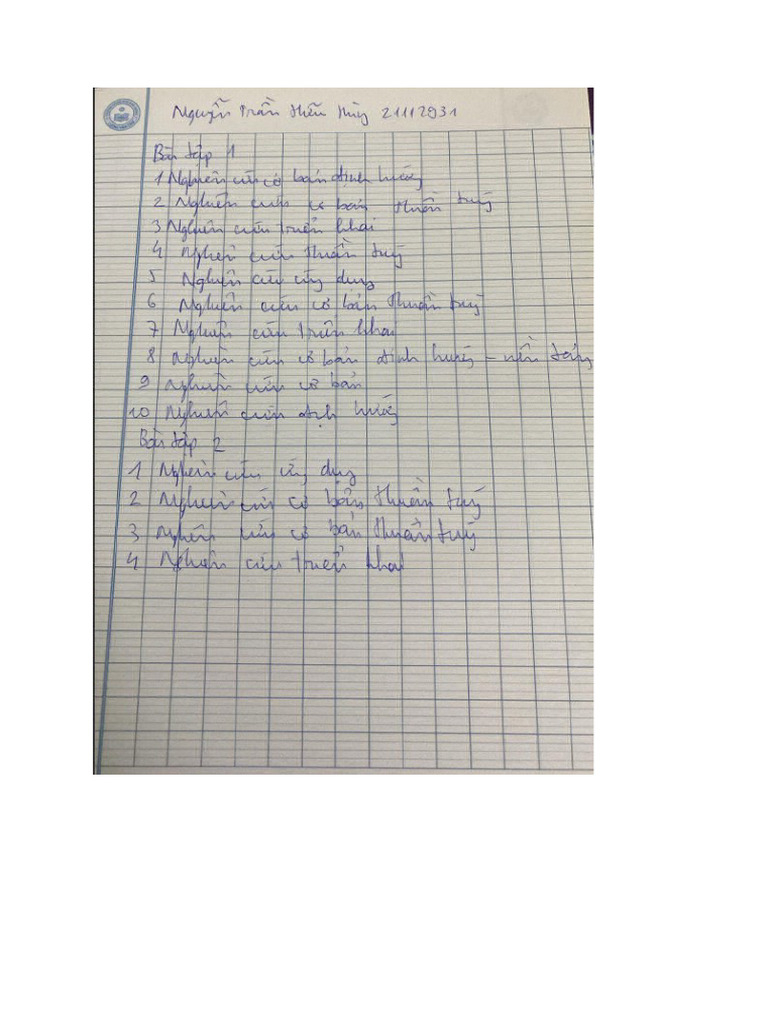 Nguyễn Trần Hữu Thùy 21112931
Bài tập 1
1 Nghiên cứu cơ bản định hướng
2 Nghiên cứu cơ bản thuần tuý
3 Nghiên cứu triển khai
4 Nghiên cứu thuần tuý
5 Nghiên cứu ứng dụng
6 Nghiên cứu cơ bản thuần tuý
7 Nghiên cứu triển khai
8 Nghiên cứu cơ bản định hướng - nền tảng
9 Nghiên cứu cơ bản
10 Nghiên cứu định hướng
Bài tập 2
1 Nghiên cứu ứng dụng
2 Nghiên cứu cơ bản thuần tuý
3 Nghiên cứu cơ bản thuần tuý
4 Nghiên cứu triển khai